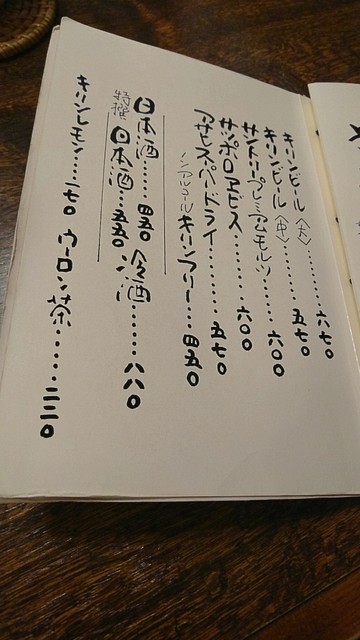 キリンビール〈大〉……六七〇
キリンビール〈中〉……五七〇
サントリープレミアムモルツ……六〇〇
サッポロヱビス……六〇〇
アサヒスーパードライ……五七〇
ノンアルコール キリンフリー……四五〇
日本酒……四五〇 冷酒……八八〇
特撰 日本酒……五五〇
キリンレモン……二七〇 ウーロン茶……二二〇